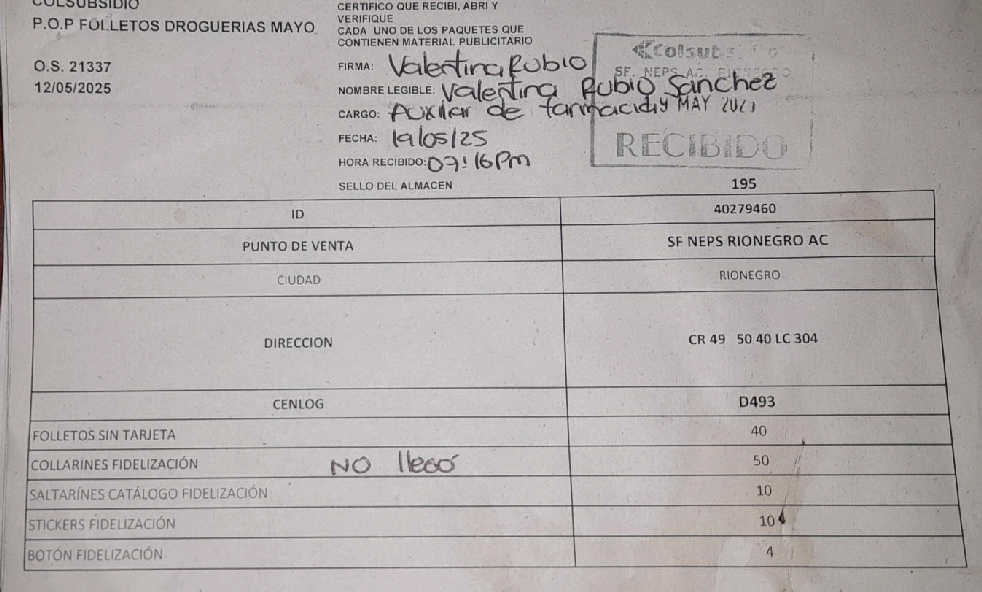 COLSUBSIDIO
P.O.P FOLLETOS DROGUERIAS MAYO
O.S. 21337
12/05/2025
CERTIFICO QUE RECIBI, ABRI Y
VERIFIQUE
CADA UNO DE LOS PAQUETES QUE
CONTIENEN MATERIAL PUBLICITARIO
FIRMA: Valentina Rubio
NOMBRE LEGIBLE: Valentina Rubio Sánchez
CARGO: Auxiliar de farmacia
FECHA: 19/05/25
HORA RECIBIDO: 07:16Pm
SELLO DEL ALMACEN
Colsubsidio
SF. NEPS AC.
MAY
RECIBIDO
195
ID 40279460
PUNTO DE VENTA SF NEPS RIONEGRO AC
CIUDAD RIONEGRO
DIRECCION CR 49 50 40 LC 304
CENLOG D493
FOLLETOS SIN TARJETA 40
COLLARINES FIDELIZACIÓN NO llegó 50
SALTARÍNES CATÁLOGO FIDELIZACIÓN 10
STICKERS FIDELIZACIÓN 10
BOTÓN FIDELIZACIÓN 4